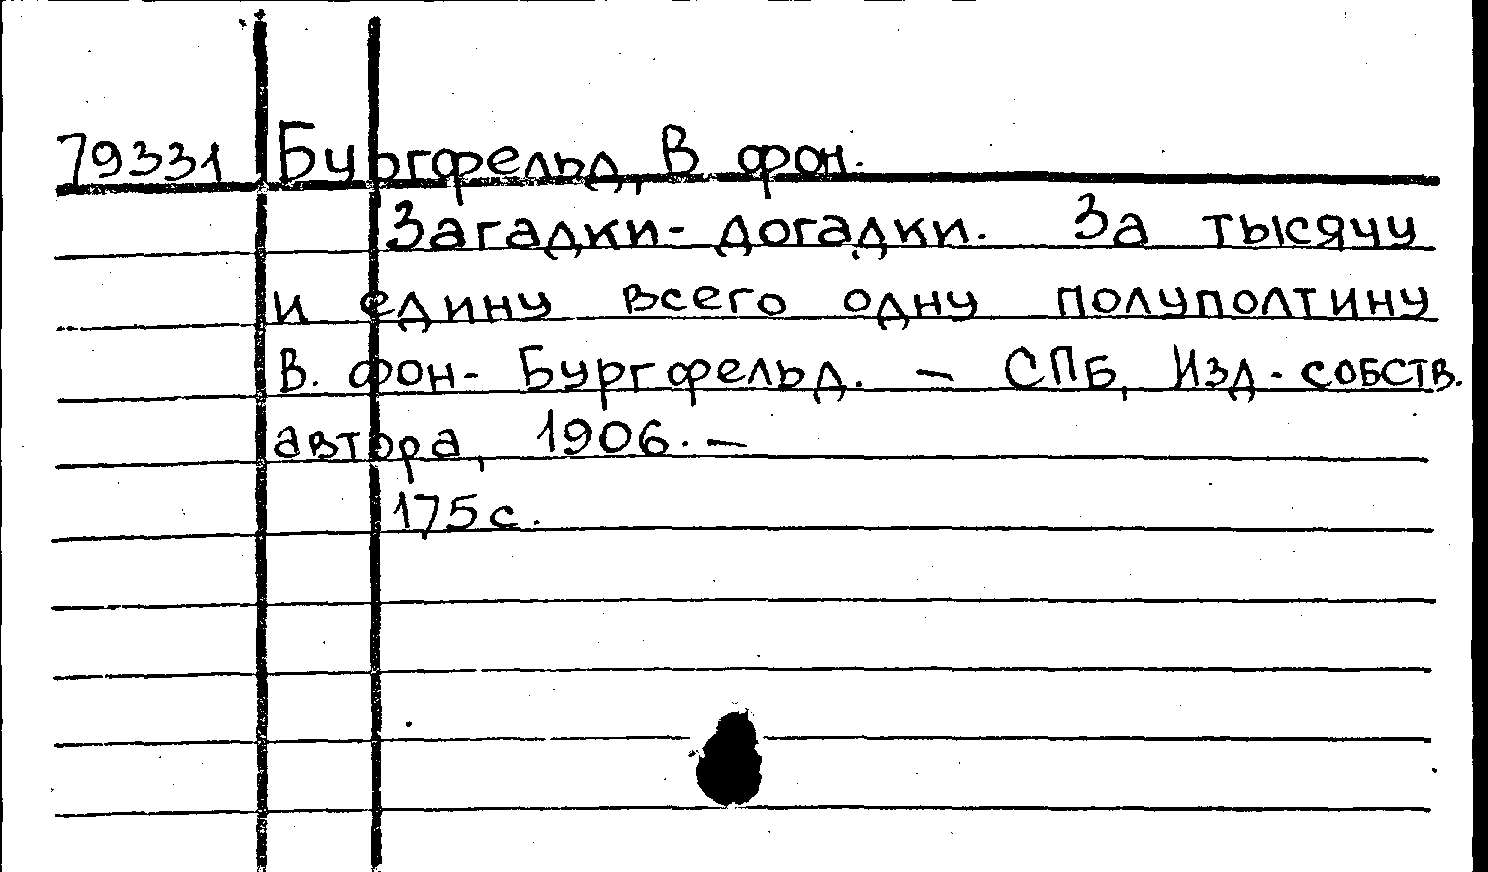 79331 Бургфельд, В фон.
Загадки-догадки. За тысячу
и едину всего одну полуполтину
В. фон-Бургфельд. — СПБ, Изд-собств.
автора, 1906. —
175 с.